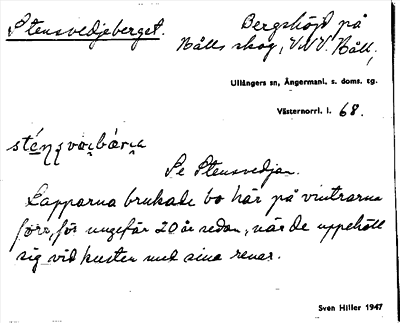 Stensvedjeberget.
Bergshöjd på
Nälls skog, V.N.V. Näll,
Ullångers sn, Ångermanl. s. doms. tg.
Västernorrl. l. 68.
Se Stensvedjan.
Lapparna brukade bo här på vintrarna
förr, för ungefär 20 år sedan, när de uppehöll
sig vid kusten med sina renar.
Sven Hiller 1947